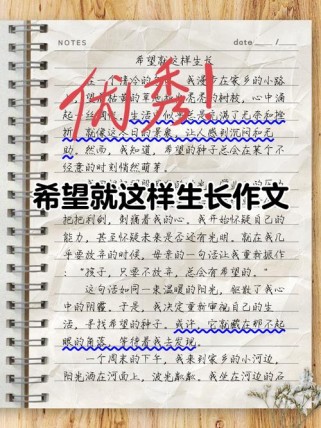 NOTES
date:
希望就这样生长
在一个清冷的 我漫步在家乡的小路
望着枯黄的草 秃秃的树枝，心中涌
起一丝惆怅。生活，似乎总是充满了无奈和挫
折，就像这冬日的景象，让人感到沉闷和无
助。然而，我知道，希望的种子总会在某个不
经意的时刻悄然萌芽。
优秀！
希望就这样生长作文
把把利剑，刺痛着我的心。我开始怀疑自己的
能力，甚至怀疑未来是否还有光明。就在我几
乎要放弃的时候，母亲的一句话让我重新振作
："孩子，只要不放弃，总会有希望的。"
这句话如同一束温暖的阳光，驱散了我心
中的阴霾。于是，我决定重新审视自己的生
活，寻找希望的种子。或许，它就藏在那不起
眼的角落，等待着我去发现。
一个周末的下午，我来到家乡的小河边，
阳光洒在河面上，波光粼粼。我坐在河边的石